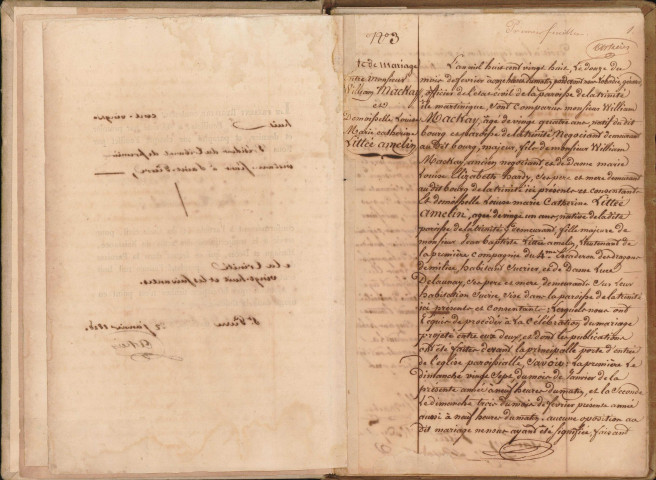 cent vingt
huit
à la trinité
vingt huit et les suivantes
St Pierre
janvier 1828
1.
N° 3
cte de mariage
entre monsieur
William Mackay
et
Demoiselle Louise
Marie catherine
Littée amelin
L'an mil huit cent vingt huit, Le douze du
mois de fevrier à sept heures du matin, pardevant nous
officier de l'état civil de la paroisse de la trinité
île martinique, sont comparus monsieur William
Mackay, âgé de vingt quatre ans, natif du dit
bourg et paroisse de la trinité Negociant demeurant
au dit bourg, majeur, fils de monsieur William
Mackay, ancien negociant et de dame marie
Louise Elizabeth hardy, ses pere et mere demeurant
au dit bourg de la trinité ici présents et consentants
Et demoiselle Louise marie Catherine Littée
amelin, agée de vingt un ans, native de la dite
paroisse de la trinité y demeurant, fille majeure de
monsieur Jean baptiste Littée amelin, Lieutenant de
la première compagnie du 4.me Escadron des Dragons
de milice, habitant Sucrier, et de Dame Luce
Delaunay, ses pere et mere demeurants sur Leur
habitation Sucrerie, Sise dans la paroisse de la trinité
ici présents et consentant. Lesquels nous ont
requis de procéder à La Célébration du mariage
projeté entre eux deux, et dont les publications
ont été faites devant la principalle porte d'entrée
de l'eglise paroissialle, Savoir: La première Le
dimanche vingt Sept du mois de Janvier de la
présente année à neuf heures du matin, et la Seconde
Le dimanche trois du mois de fevrier presente année
aussi à neuf heures du matin, aucune opposition au
dit mariage ne nous ayant été signifiée, faisant